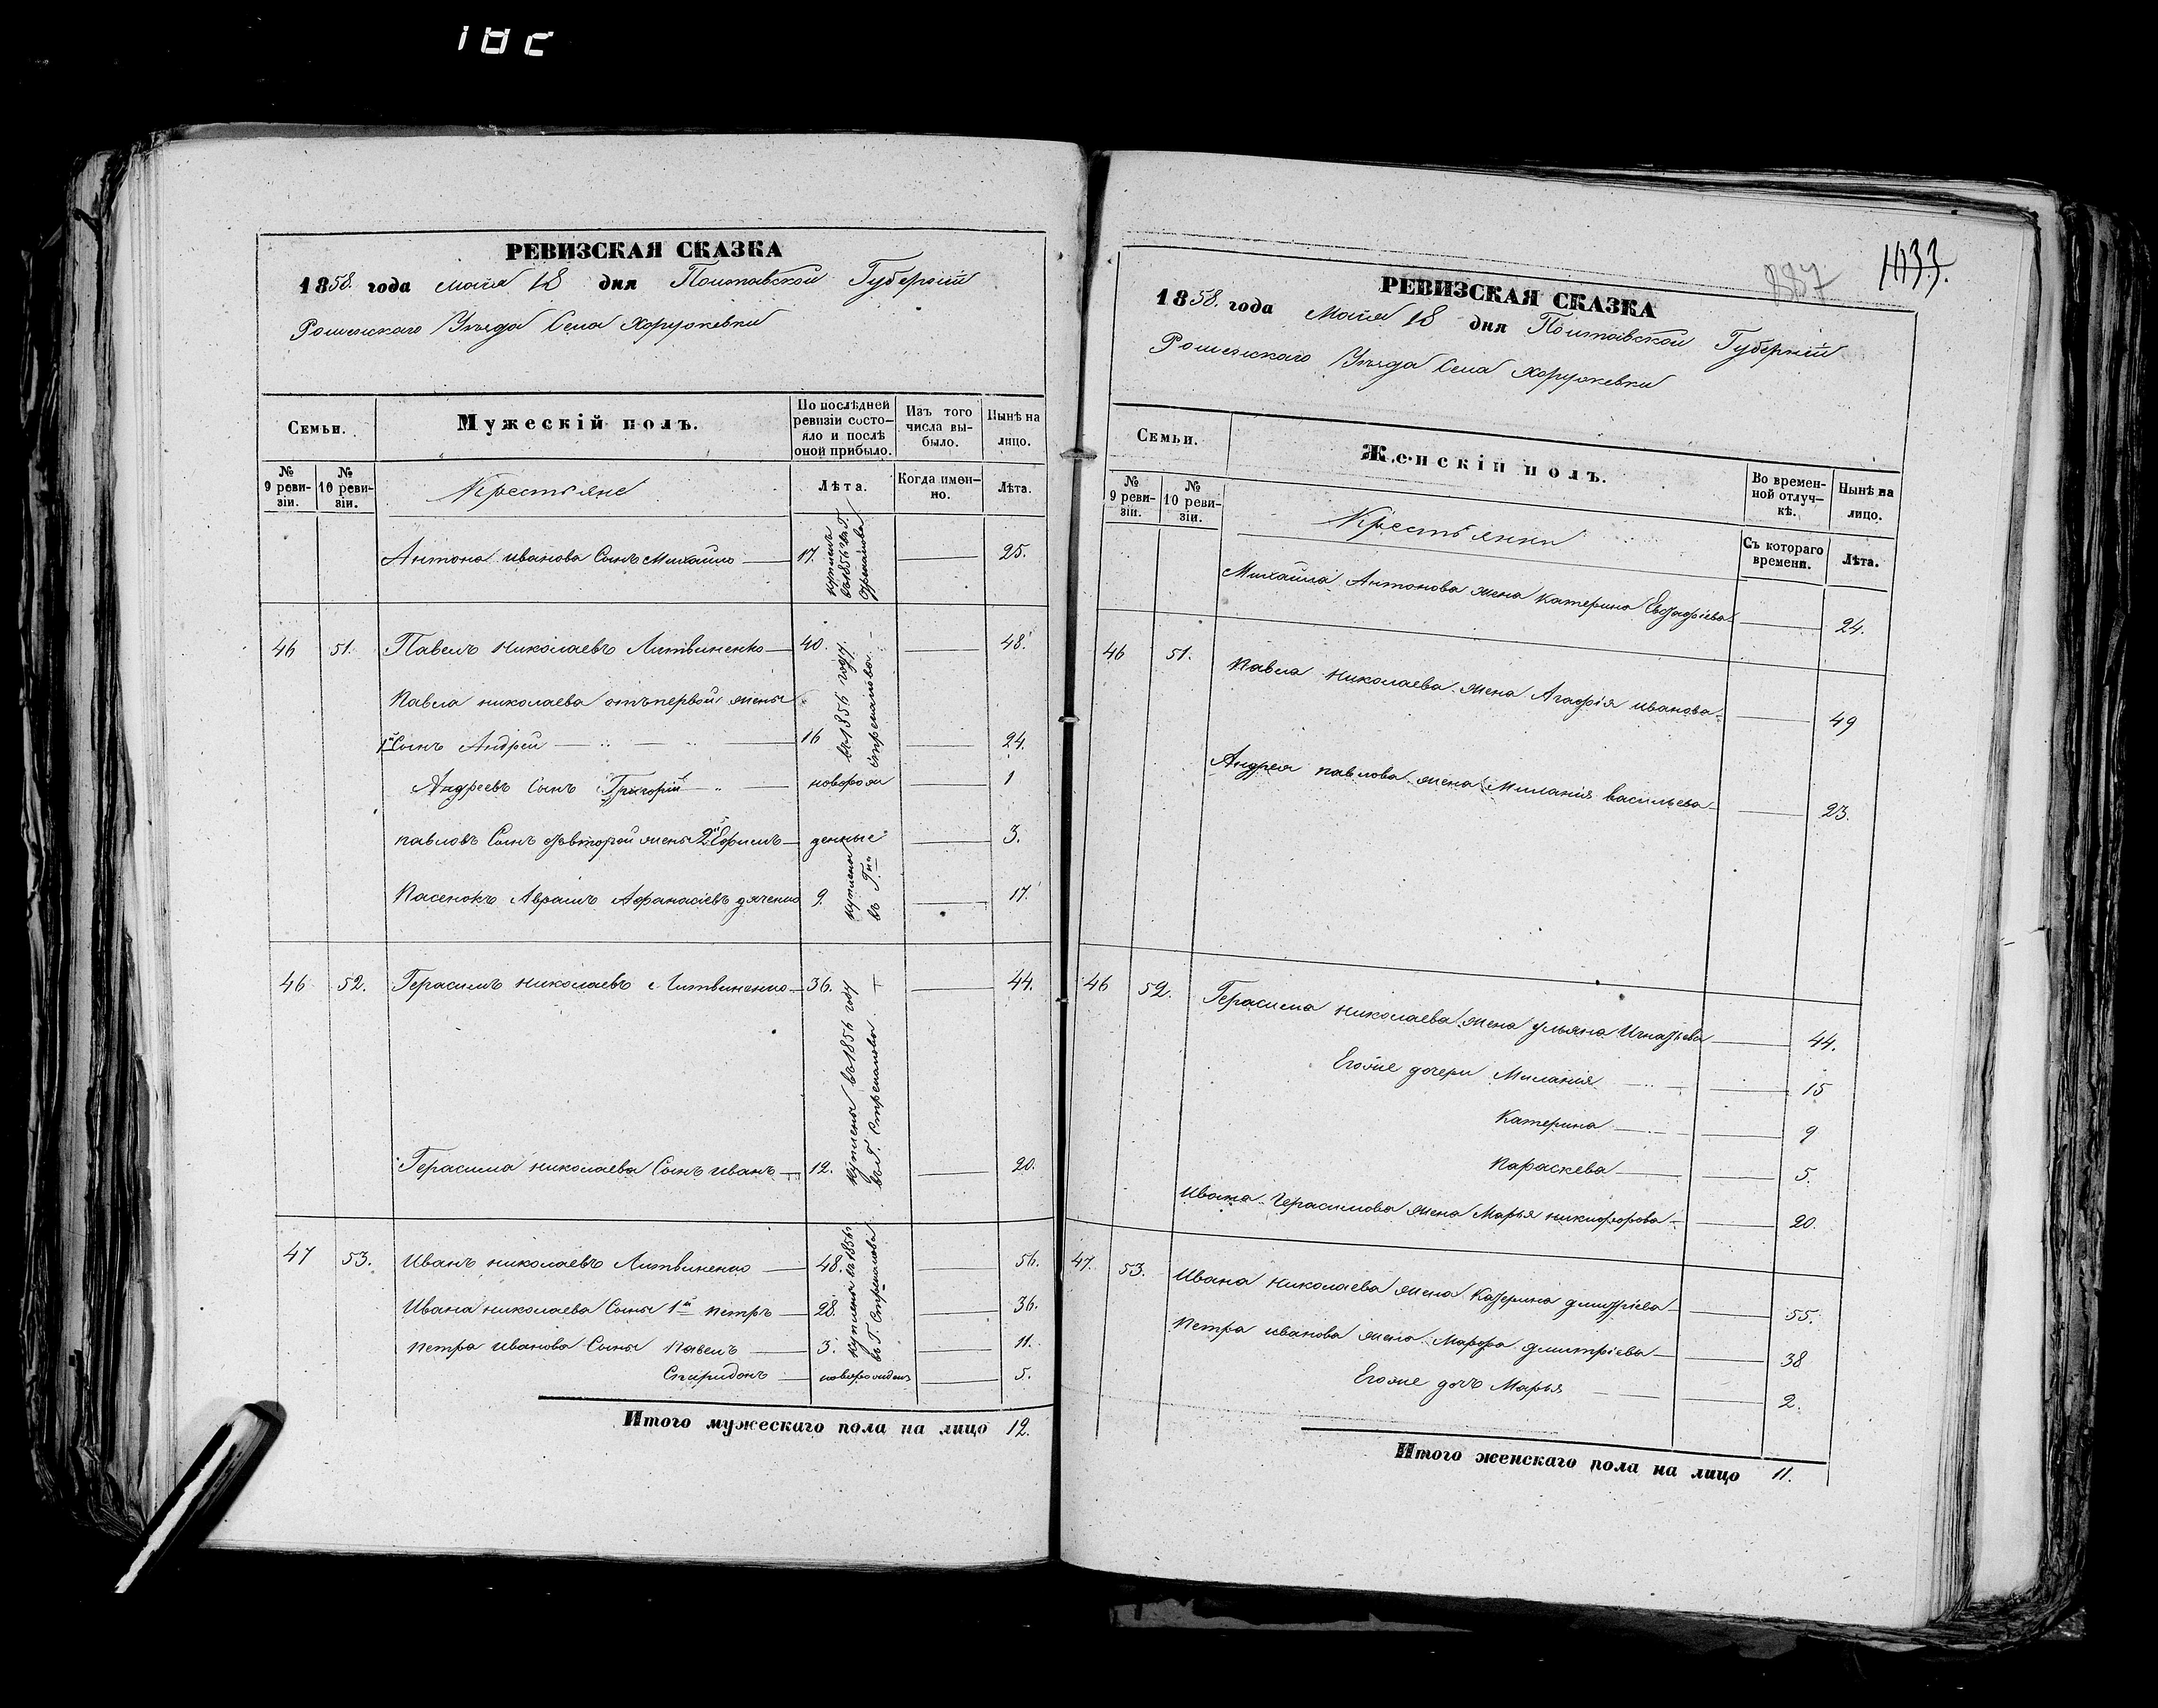 РЕВИЗСКАЯ СКАЗКА
1858. года мая 18 дня Полтавской Губерніи
Роменскаго Уѣзда Села Хоружевки
Семьи.
Мужескій полъ.
По послѣдней ревизіи состо-яло и послѣ оной прибыло.
Изъ того числа вы-было.
Нынѣ на лицо.
№ 9 реви-зіи.
№ 10 реви-зіи.
Крестьяне
Лѣта.
Когда имен-но.
Лѣта.
Антона иванова Сынъ Михайло 17. 25.
46 51. Павелъ николаевъ Литвиненко 40. 48.
въ 1856 году
Павла николаева отъ первой жены
1й Сынъ Андрей 16 24.
Андреевъ Сынъ Григорій новорож 1
павловъ Сынъ отъ второй жены 2й Ефимъ денные 3.
Пасенокъ Аврамъ Афанасіевъ дяченко 9. 17.
куплены въ Г.
46 52. Герасимъ николаевъ Литвиненко 36. 44.
куплены въ 1856 году
въ Г. Стремаковой
Герасима николаева Сынъ иванъ 12. 20.
47 53. Иванъ николаевъ Литвиненко 48. 56.
куплены въ 1856
Ивана николаева Сыны 1й петръ 28. 36.
петра иванова Сыны Павелъ 3. 11.
Спиридонъ новорожденъ 5.
Итого мужескаго пола на лицо 12.
887
1033.
РЕВИЗСКАЯ СКАЗКА
1858. года Мая 18 дня Полтавской Губерніи
Роменскаго Уѣзда Села Хоружевки
Семьи.
Женскій полъ.
Во времен-ной отлуч-кѣ.
Нынѣ на лицо.
№ 9 реви-зіи.
№ 10 реви-зіи.
Крестьянки
Съ котораго времени.
Лѣта.
Михайла Антонова жена катерина 24.
46 51. Павла николаева жена Агафія иванова 49
Андрея павлова жена Миланія васильева 23.
46 52. Герасима николаева жена ульяна Игнатьева 44.
Егоже дочери Миланія 15
Катерина 9
Параскева 5.
Ивана Герасимова жена Марья никифорова 20.
47. 53. Ивана николаева жена Катерина дмитріева 55.
Петра иванова жена Марфа дмитріева 38
Егоже дочь Марья 2.
Итого женскаго пола на лицо 11.